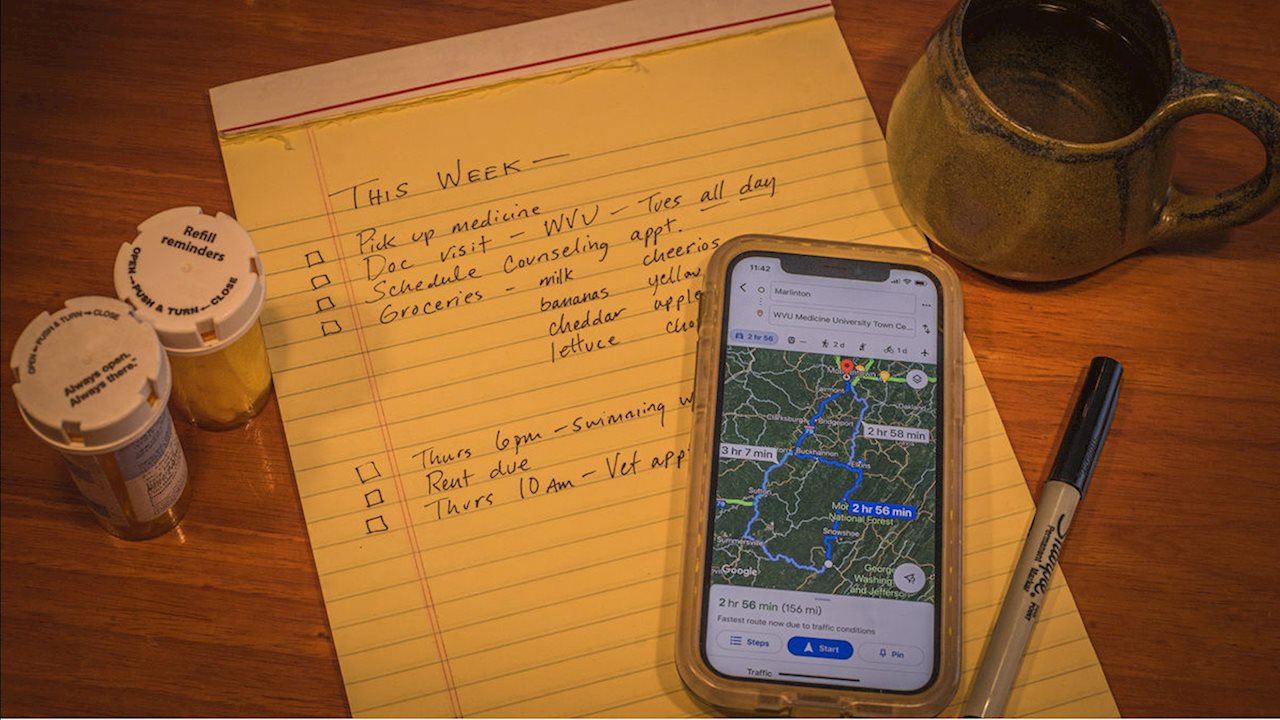 THIS WEEK —
Pick up medicine
Doc visit - WVU - Tues all day
Schedule Counseling appt.
Groceries - milk cheerios
bananas yellow
cheddar
lettuce
Thurs 6pm - swimming
Rent due
Thurs 10 AM - Vet appt
Refill
reminders
OPEN PUSH & TURN CLOSE
OPEN PUSH & TURN CLOSE
Always open.
Always there.
11:42
Marlinton
WVU Medicine University Town Ce...
2 hr 56
2 d
1 d
Fairmont
Oakland
Clarksburg
Bridgeport
2 hr 58 min
3 hr 7 min
Buckhannon
Elkins
Sutton
2 hr 56 min
National Forest
Snowshoe
Summersville
Google
George
Washing
and Jefferso
2 hr 56 min (156 mi)
Fastest route now due to traffic conditions
Steps
Start
Pin
Traffic
Sharpie
Permanent Marker